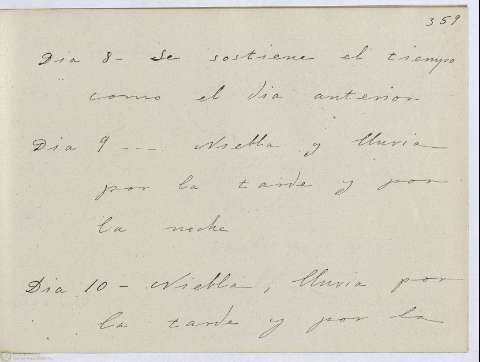 359
Dia 8 - Se sostiene el tiempo
como el dia anterior
Dia 9 --- Niebla y lluvia
por la tarde y por
la noche
Dia 10 - Niebla, lluvia por
la tarde y por la